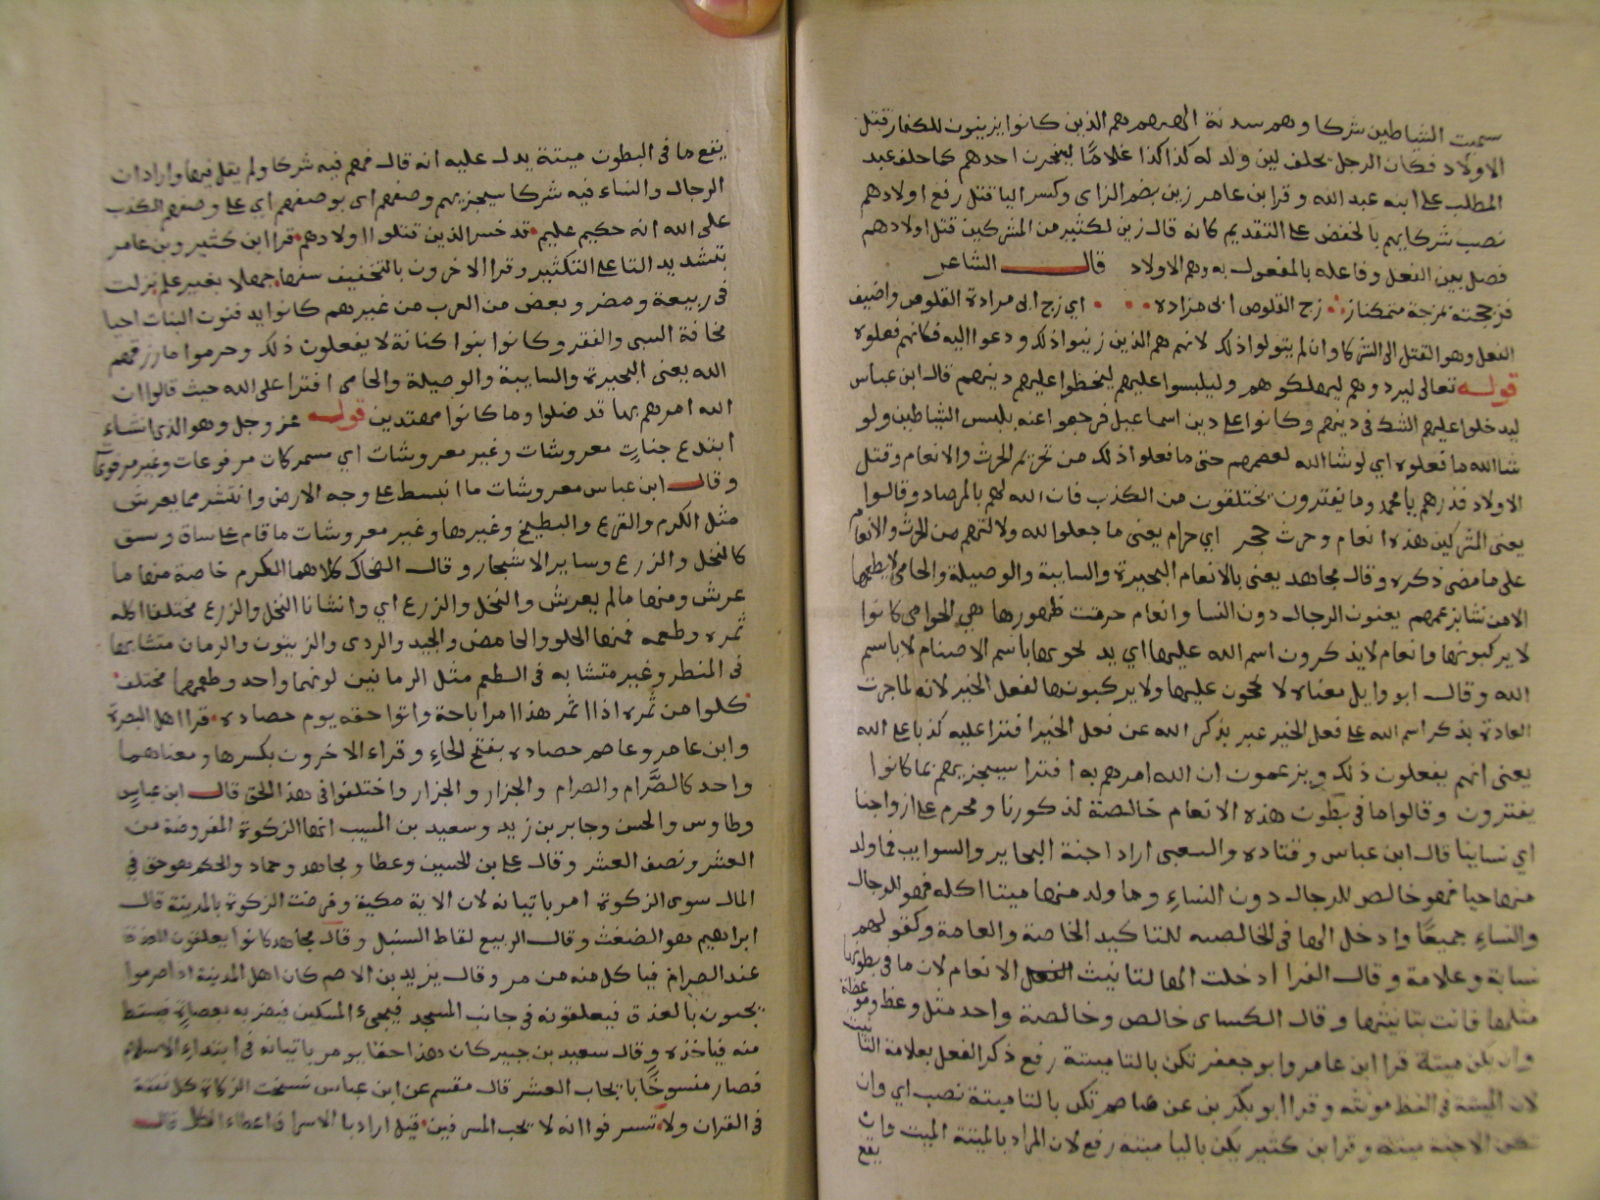 سميت الشاطين شركا وهم سدنة الهتهم هم الذين كانوا يزينون للكفار قتل
الاولاد فكان الرجل يحلف لين ولد له كذا كذا غلامًا لينحرن احدهم كما حلف عبد
المطلب على ابنه عبد الله وقرا بن عامر زين بضم الزاى وكسر اليا قتل رفع اولادهم
نصب شركايهم بالخفض على التقديم كانه قال زين لكثير من المشركين قتل اولادهم
فصل بين الفعل وفاعله بالمفعول به وهم الاولاد قال الشاعر
فزججته بمزجة متمكنا زج القلوص ابى مزاده اي زج ابى مزادة القلوص واضيف
الفعل وهو القتل الى الشركا وان لم يتولوا ذلك لانهم هم الذين زينوا ذلك ودعوا اليه فكانهم فعلوه
قوله تعالى ليردوهم ليهلكوهم وليلبسوا عليهم ليخطوا عليهم دينهم قال ابن عباس
ليدخلوا عليهم الشك فى دينهم وكانوا على دين اسماعيل فرجعوا عنه بلبس الشياطين ولو
شا الله ما فعلوه اي لو شا الله لعصمهم حتى ما فعلوا ذلك من تحريم الحرث والانعام وقتل
الاولاد فذرهم يا محمد وما يفترون يختلقون من الكذب فان الله لهم بالمرصاد وقالوا
يعنى المشركين هذه انعام وحرث حجر اي حرام يعنى ما جعلوا لله ولالهتهم من الحرث والانعام
على ما مضى ذكره وقال مجاهد يعنى بالانعام البحيرة والسايبة والوصيلة والحامى لا يطعمها
الا من نشا بزعمهم يعنون الرجال دون النسا وانعام حرمت ظهورها هي الحوامى كانوا
لا يركبونها وانعام لا يذكرون اسم الله عليها اي يذبحونها باسم الاصنام لا باسم
الله وقال ابو وايل معناه لا يحجون عليها ولا يركبونها لفعل الخير لانه لما جرت
العادة بذكر اسم الله على فعل الخير عبر بذكر الله عن فعل الخير افترا عليه كذبا على الله
يعنى انهم يفعلون ذلك ويزعمون ان الله امرهم به افترا سيجزيهم بما كانوا
يفترون وقالوا ما فى بطون هذه الانعام خالصة لذكورنا ومحرم على ازواجنا
اي نساينا قال ابن عباس وقتاده والشعبى اراد اجنة البحاير والسوايب فما ولد
منها حيا فهو خالص للرجال دون النساءِ وما ولد منها ميتا اكله فهو للرجال
والنساءِ جميعًا وادخل الها فى الخالصه للتاكيد الخاصة والعامة وكقولهم
نسابة وعلامة وقال الفرا ادخلت الها لتانيث الفعل الانعام لان ما فى بطونها
مثلها فانت بتانيثها وقال الكساى خالص وخالصة واحد مثل وعظ وموعظة
وان يكن ميتة قرا ابن عامر وابو جعفر تكن بالتا ميتة رفع ذكر الفعل بعلامة التانيث
لان الميتة فى اللفظ مونثه وقرا ابو بكر بن عن عاصم تكن بالتا ميتة نصب اي وان
تكن الاجنة ميتة وقرا بن كثير يكن باليا ميته رفع لان المراد بالميتة الميت وان
يقع
يقع ما فى البطون ميتة يدل عليه انه قال فهم فيه شركا ولم يقل فيها واراد ان
الرجال والنساء فيه شركا سيجزيهم وصفهم اى بوصفهم اي على وصفهم الكذب
على الله انه حكيم عليم قد خسر الذين قتلوا اولادهم قرا ابن كثير وبن عامر
بتشديد التا على التكثير وقرا الاخرون بالتخفيف سفها جهلا بغير علم نزلت
فى ربيعة ومضر وبعض من العرب من غيرهم كانوا يدفنون البنات احيا
مخافة السبى والفقر وكانوا بنوا كنانة لا يفعلون ذلك وحرموا ما رزقهم
الله يعنى البحيرة والسايبة والوصيلة والحامى افترا على الله حيث قالوا ان
الله امرهم بها قد ضلوا وما كانوا مهتدين قوله عز وجل وهو الذى انشاء
ابتدع جناتٍ معروشات وغير معروشات اي مسمركات مرفوعات وغير مرفوعات
وقال ابن عباس معروشات ما انبسط على وجه الارض وانتشر مما يعرش
مثل الكرم والقرع والبطيخ وغيرها وغير معروشات ما قام على ساق وبسق
كالنخل والزرع وساير الاشجار وقال الضحاك كلاهما الكرم خاصة منها ما
عرش ومنها ما لم يعرش والنخل والزرع اي وانشانا النخل والزرع مختلفا اكله
ثمره وطعمه فمنها الحلو والحامض والجيد والردى والزيتون والرمان متشابها
فى المنظر وغير متشابه فى الطعم مثل الرمانين لونهما واحد وطعمهما مختلف
كلوا من ثمره اذا اثمر هذا امر اباحة واتوا حقه يوم حصاده قرا اهل البصرة
وابن عامر وعاصم حصاده بفتح الحاءِ وقراء الاخرون بكسرها ومعناهما
واحد كالصَّرام والصرام والجزار والجزار واختلفوا فى هذا الحق قال ابن عباسٍ
وطاوس والحسن وجابر بن زيد وسعيد بن المسيب انها الزكوة المفروضة من
العشر ونصف العشر وقال على بن الحسين وعطا ومجاهد وحماد والحكم هو حق في
المال سوى الزكوة امر باتيانه لان الاية مكية وفرضت الزكوة بالمدينة قال
ابراهيم هو الضغث وقال الربيع لقاط السنبل وقال مجاهد كانوا يعلقون العذق
عند الصرام فياكل منه من مر وقال يزيد بن الاصم كان اهل المدينة اذا صرموا
يجيون بالعذق فيعلقونه فى جانب المسجد فيجىء المسكين فيضربه بعصاه فيسقط
منه فياخذه وقال سعيد بن جبير كان هذا حقا يومر باتيانه فى ابتداءِ الاسلام
فصار منسوخًا بايجاب العشر قال مقسم عن ابن عباس نسخت الزكاة كل نفقة
فى القران ولا تسرفوا انه لا يحب المسرفين قيل اراد بالاسراف اعطاء الكل قال